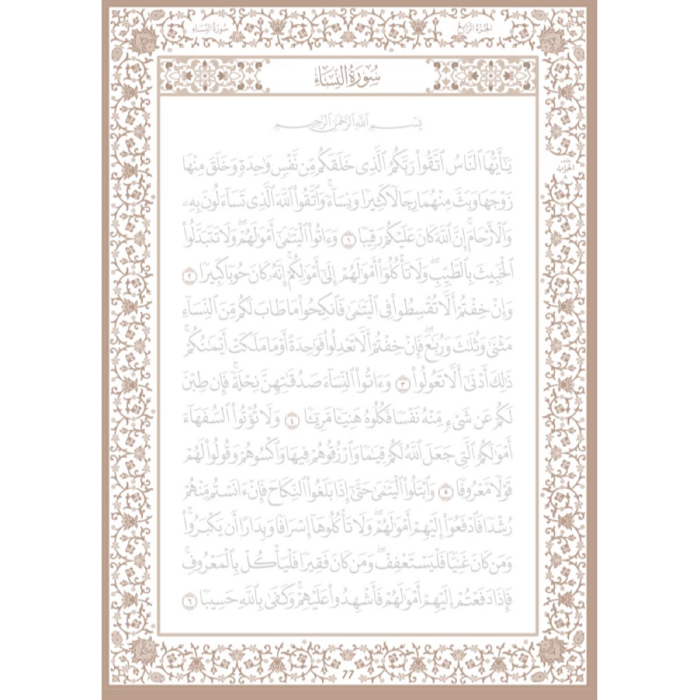 سُورَةُ النِّسَاءِ
الجُزْءُ الرَّابِعُ
سُورَةُ النِّسَاءِ
بِسْمِ ٱللَّهِ ٱلرَّحْمَٰنِ ٱلرَّحِيمِ
يَٰٓأَيُّهَا ٱلنَّاسُ ٱتَّقُوا۟ رَبَّكُمُ ٱلَّذِى خَلَقَكُم مِّن نَّفْسٍ وَٰحِدَةٍ وَخَلَقَ مِنْهَا
زَوْجَهَا وَبَثَّ مِنْهُمَا رِجَالًا كَثِيرًا وَنِسَآءً ۚ وَٱتَّقُوا۟ ٱللَّهَ ٱلَّذِى تَسَآءَلُونَ بِهِۦ
وَٱلْأَرْحَامَ ۚ إِنَّ ٱللَّهَ كَانَ عَلَيْكُمْ رَقِيبًا ١ وَءَاتُوا۟ ٱلْيَتَٰمَىٰٓ أَمْوَٰلَهُمْ ۖ وَلَا تَتَبَدَّلُوا۟
ٱلْخَبِيثَ بِٱلطَّيِّبِ ۖ وَلَا تَأْكُلُوٓا۟ أَمْوَٰلَهُمْ إِلَىٰٓ أَمْوَٰلِكُمْ ۚ إِنَّهُۥ كَانَ حُوبًا كَبِيرًا ٢
وَإِنْ خِفْتُمْ أَلَّا تُقْسِطُوا۟ فِى ٱلْيَتَٰمَىٰ فَٱنكِحُوا۟ مَا طَابَ لَكُم مِّنَ ٱلنِّسَآءِ
مَثْنَىٰ وَثُلَٰثَ وَرُبَٰعَ ۖ فَإِنْ خِفْتُمْ أَلَّا تَعْدِلُوا۟ فَوَٰحِدَةً أَوْ مَا مَلَكَتْ أَيْمَٰنُكُمْ ۚ
ذَٰلِكَ أَدْنَىٰٓ أَلَّا تَعُولُوا۟ ٣ وَءَاتُوا۟ ٱلنِّسَآءَ صَدُقَٰتِهِنَّ نِحْلَةً ۚ فَإِن طِبْنَ
لَكُمْ عَن شَىْءٍ مِّنْهُ نَفْسًا فَكُلُوهُ هَنِيٓـًٔا مَّرِيٓـًٔا ٤ وَلَا تُؤْتُوا۟ ٱلسُّفَهَآءَ
أَمْوَٰلَكُمُ ٱلَّتِى جَعَلَ ٱللَّهُ لَكُمْ قِيَٰمًا وَٱرْزُقُوهُمْ فِيهَا وَٱكْسُوهُمْ وَقُولُوا۟ لَهُمْ
قَوْلًا مَّعْرُوفًا ٥ وَٱبْتَلُوا۟ ٱلْيَتَٰمَىٰ حَتَّىٰٓ إِذَا بَلَغُوا۟ ٱلنِّكَاحَ فَإِنْ ءَانَسْتُم مِّنْهُمْ
رُشْدًا فَٱدْفَعُوٓا۟ إِلَيْهِمْ أَمْوَٰلَهُمْ ۖ وَلَا تَأْكُلُوهَآ إِسْرَافًا وَبِدَارًا أَن يَكْبَرُوا۟ ۚ
وَمَن كَانَ غَنِيًّا فَلْيَسْتَعْفِفْ ۖ وَمَن كَانَ فَقِيرًا فَلْيَأْكُلْ بِٱلْمَعْرُوفِ ۚ
فَإِذَا دَفَعْتُمْ إِلَيْهِمْ أَمْوَٰلَهُمْ فَأَشْهِدُوا۟ عَلَيْهِمْ ۚ وَكَفَىٰ بِٱللَّهِ حَسِيبًا ٦
٧٧